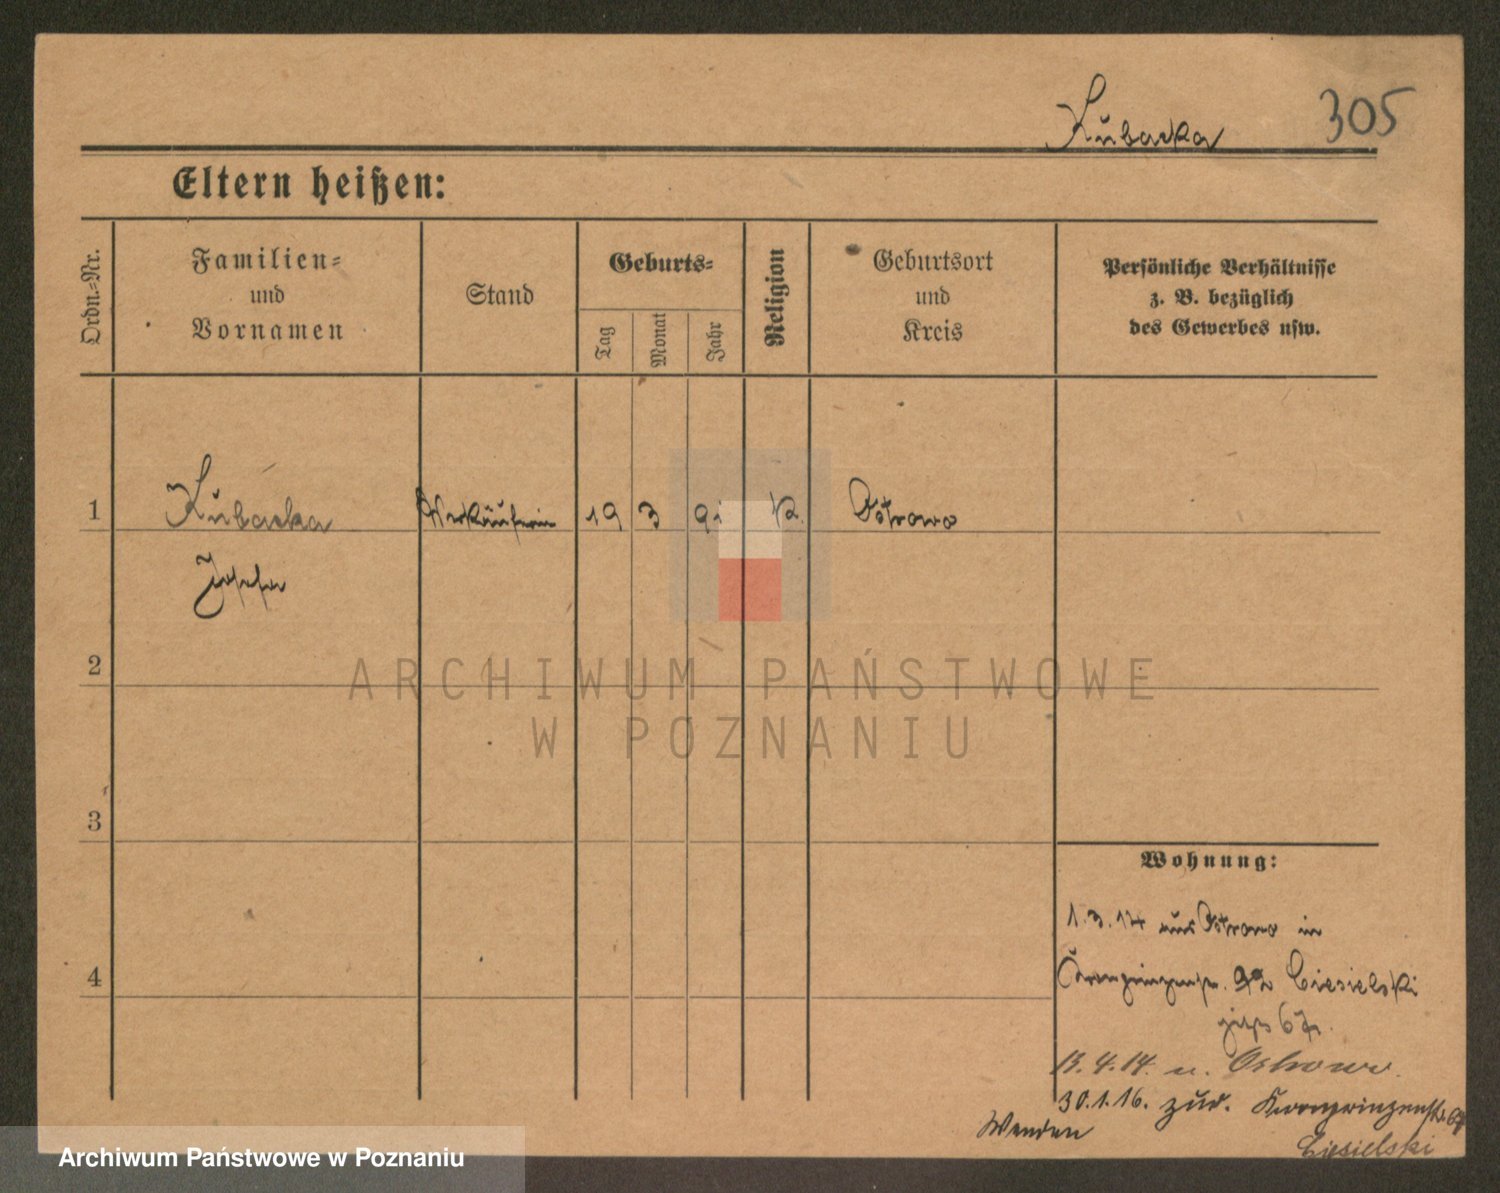 Kubacka 305
Eltern heißen:
Ordn.-Nr.
Familien-
und
Vornamen
Stand
Geburts-
Tag
Monat
Jahr
Religion
Geburtsort
und
Kreis
Persönliche Verhältnisse
z. B. bezüglich
des Gewerbes usw.
1 Kubacka Verkäuferin 19 3 91 K. Ostrowo
Josefa
2
3
4
Wohnung:
1.3.14 aus Ostrowo in
Kronprinzenstr. 92 Ciesielski
13.4.14. n. Ostrowo.
30.1.16. zur. Kronprinzenstr. 67
Wenden
Ciesielski
ARCHIWUM PAŃSTWOWE
W POZNANIU
Archiwum Państwowe w Poznaniu